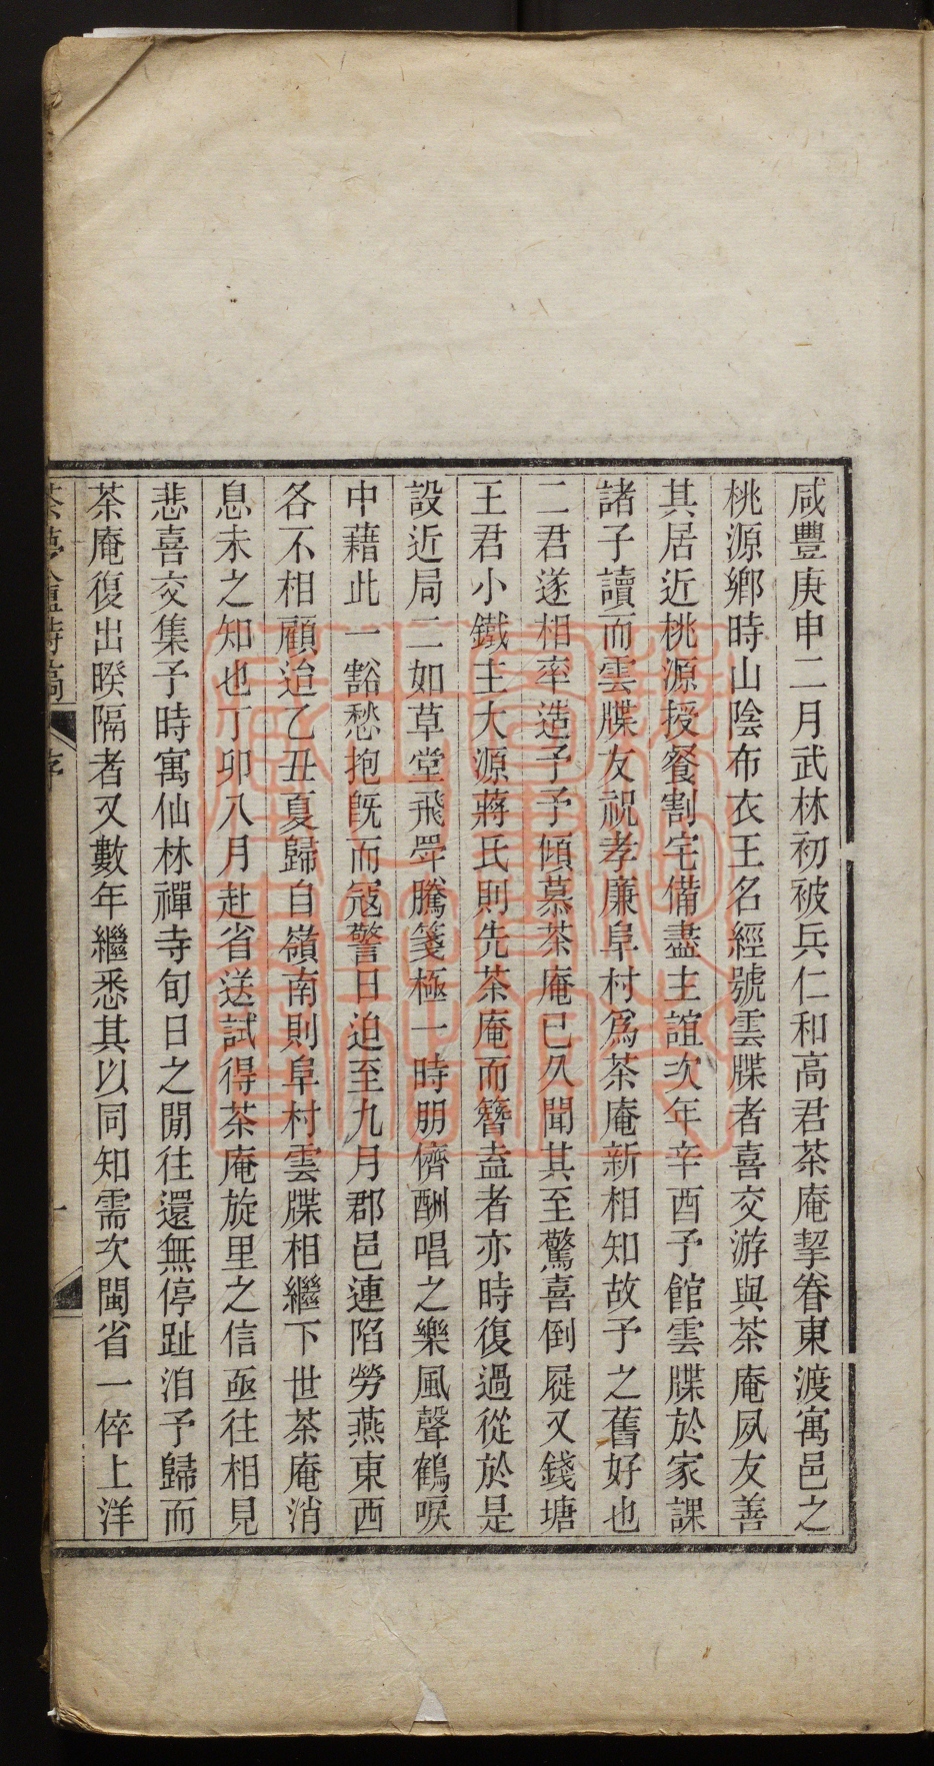 咸豐庚申二月武林初被兵仁和高君茶庵挈眷東渡寓邑之
桃源鄉時山陰布衣王名經號雲牒者喜交游與茶庵夙友善
其居近桃源授餐割宅備盡主誼次年辛酉予館雲牒於家課
諸子讀而雲牒友祝孝廉阜村爲茶庵新相知故予之舊好也
二君遂相率造予予傾慕茶庵已久聞其至驚喜倒屣又錢塘
王君小鐵主大源蔣氏則先茶庵而簪盍者亦時復過從於是
設近局二如草堂飛斝騰箋極一時朋儕酬唱之樂風聲鶴唳
中藉此一豁愁抱旣而寇警日迫至九月郡邑連陷勞燕東西
各不相顧迨乙丑夏歸自嶺南則阜村雲牒相繼下世茶庵消
息未之知也丁卯八月赴省送試得茶庵旋里之信亟往相見
悲喜交集予時寓仙林禪寺旬日之閒往還無停趾洎予歸而
茶庵復出暌隔者又數年繼悉其以同知需次閩省一倅上洋
序